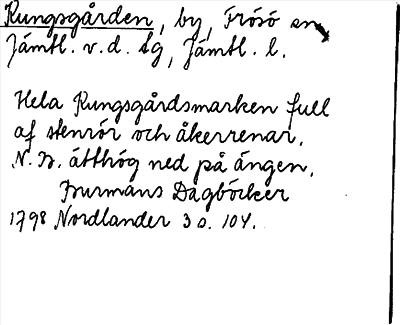 Kungsgården, by, Frösö sn
Jämtl. v. d. tg, Jämtl. l.
Hela Kungsgårdsmarken full
af stenrör och åkerrenar,
N. B. ätthög ned på ängen,
Burmans Dagböcker
1798 Nordlander 3 o. 104.